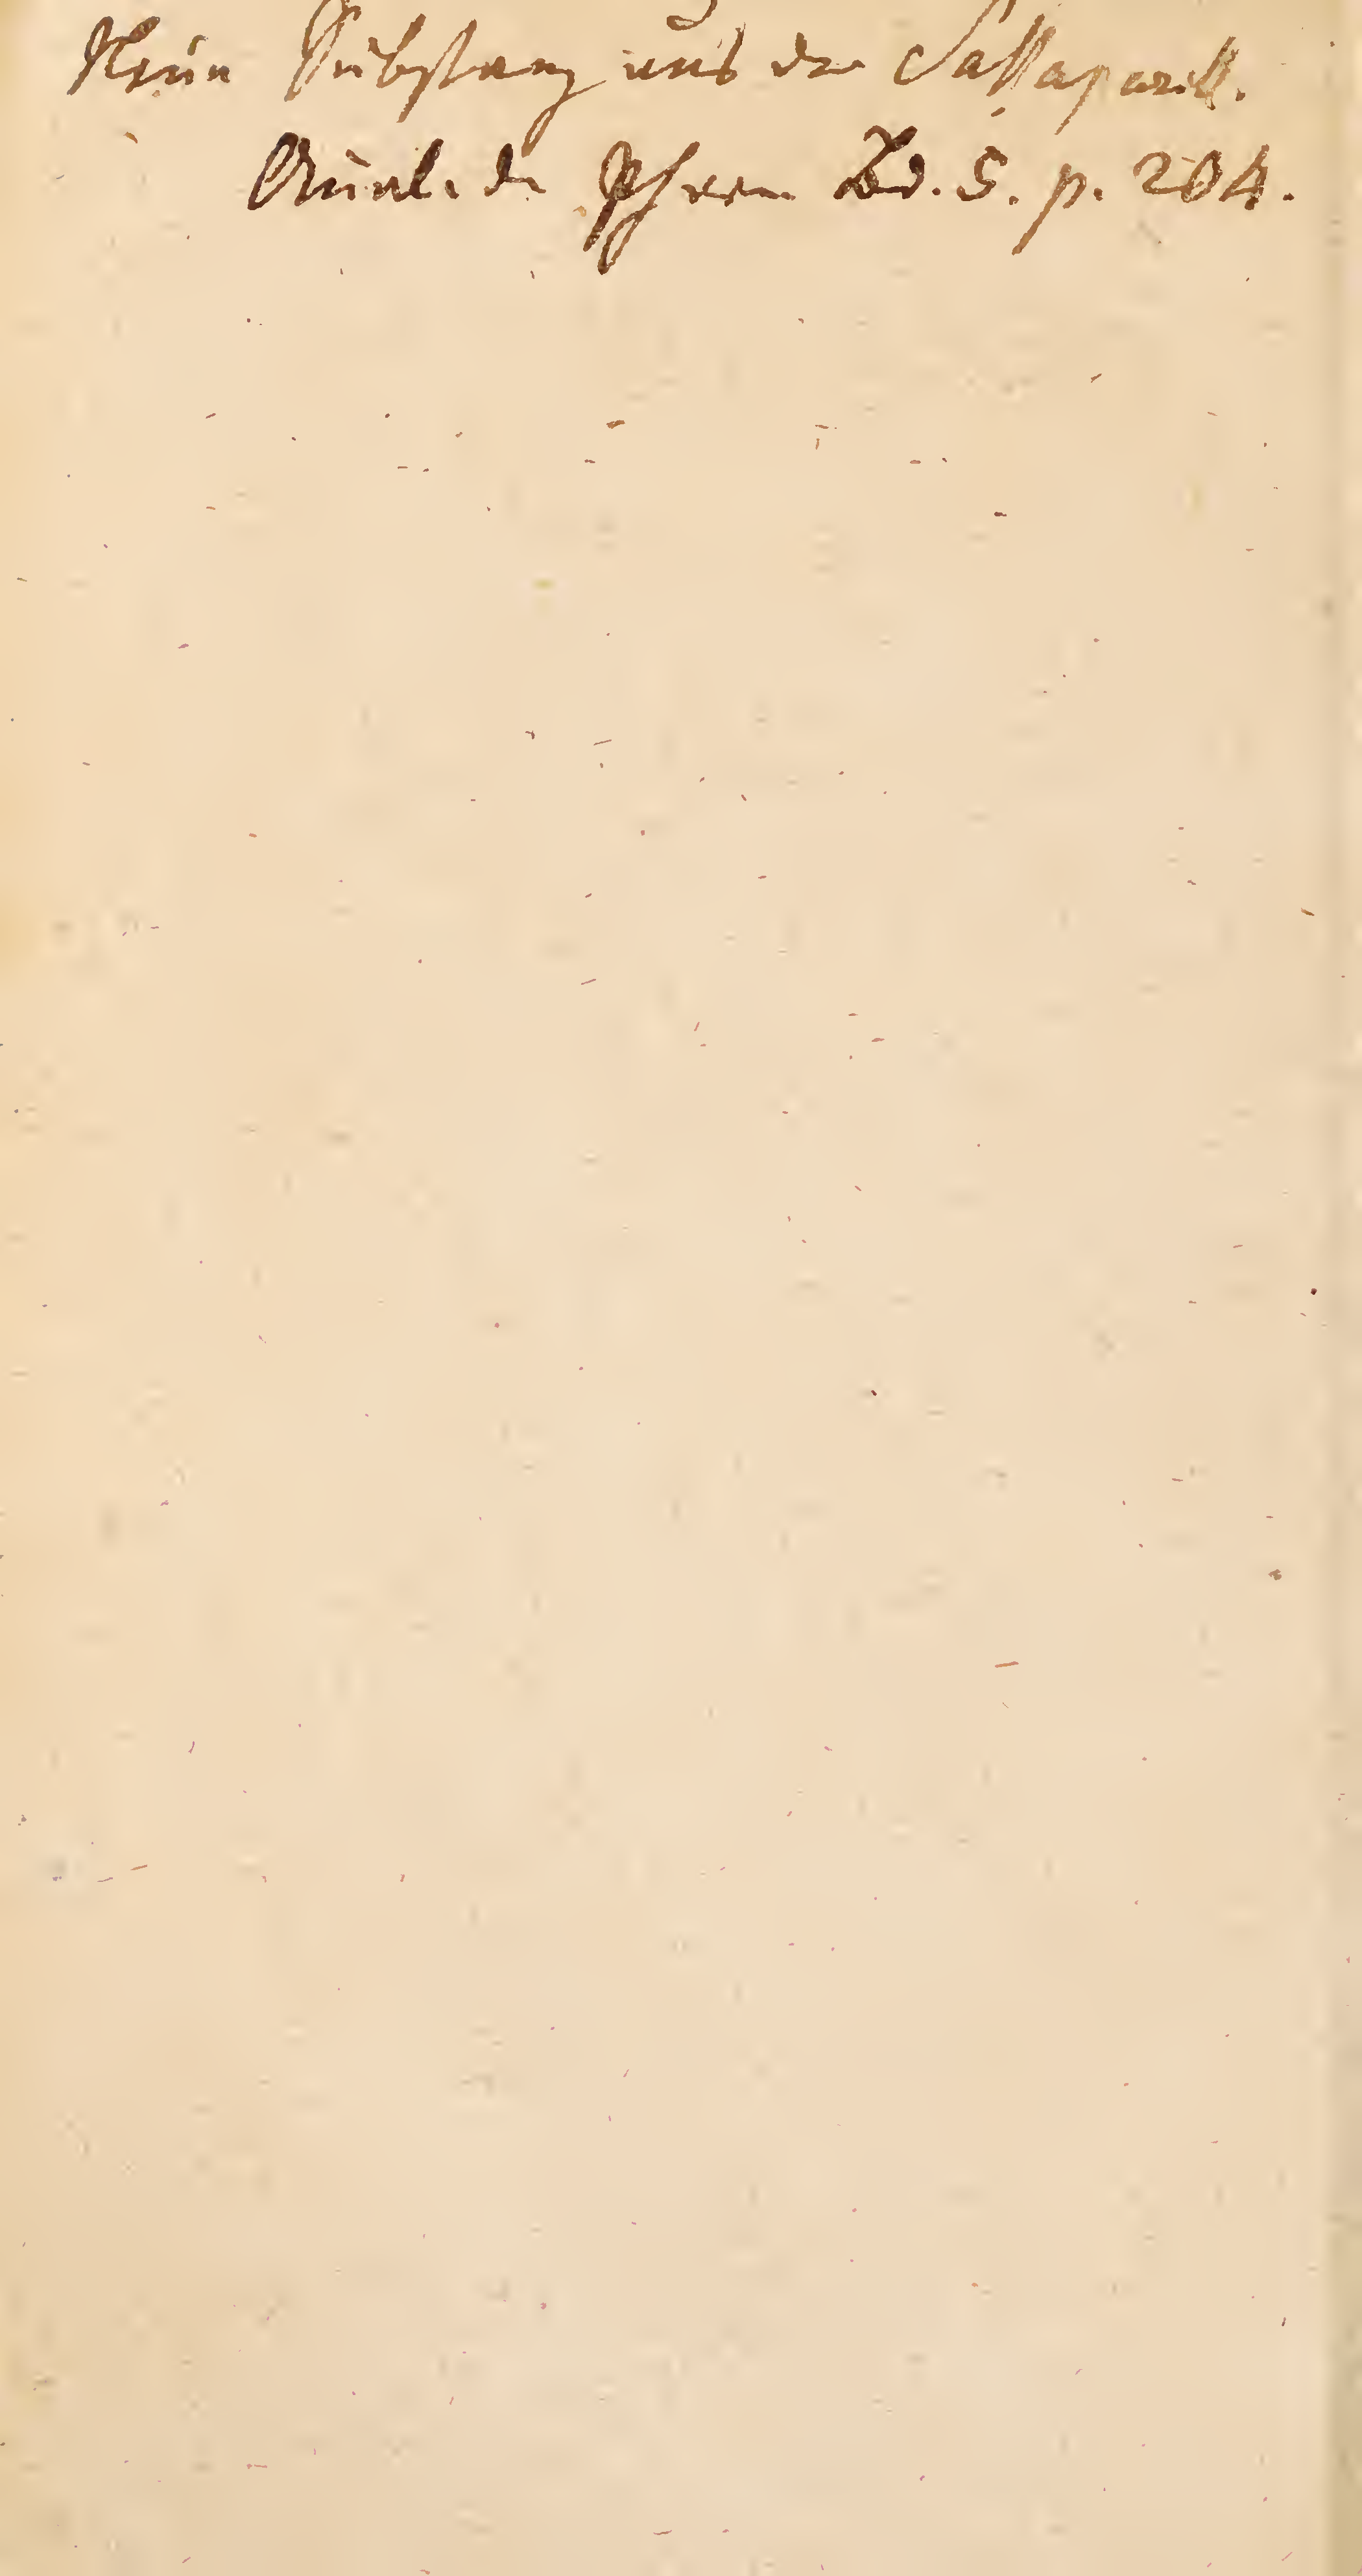 Neue Substanz aus der Sassaparill.
Annal. der Pharm Bd. 5. p. 204.